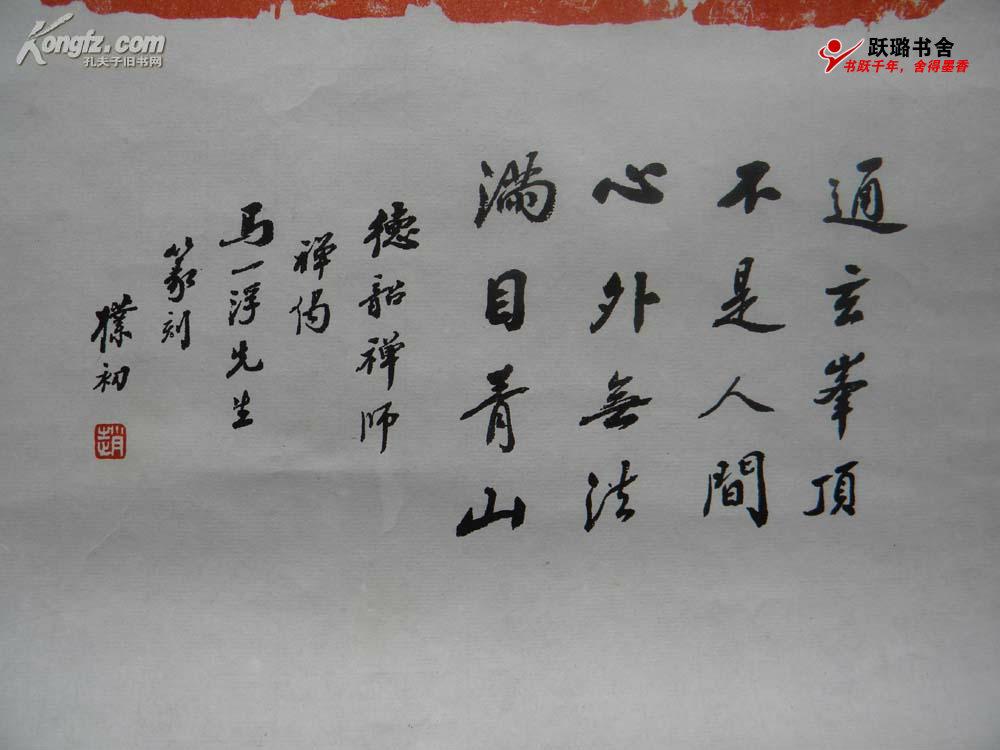 Kongfz.com
孔夫子旧书网
跃璐书舍
书跃千年，舍得墨香
通玄峯顶
不是人間
心外無法
满目青山
德韶禅师
禅偈
马一浮先生
篆刻
樸初
趙